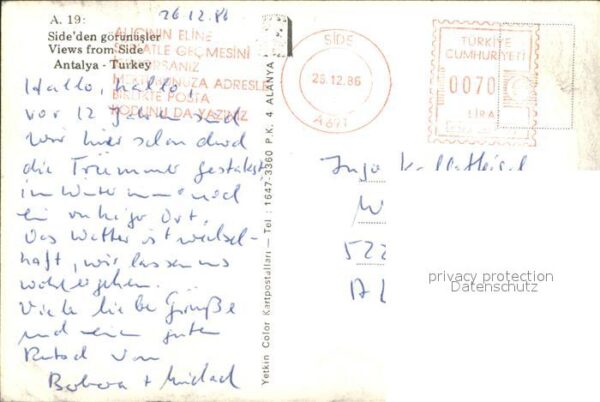 26.12.86
A. 19:
Side'den görünüşler
Views from Side
Antalya - Turkey
ALICININ ELİNE
GEÇMESİNİ
ADRESLE
BİRLİKTE POSTA
KODUNU DA YAZINIZ
SİDE
26.12.86
A 671
TÜRKİYE
CUMHURİYETİ
0070
LİRA
Hallo, hallo!
vor 12 Jahren sind
wir hier schon durch
die Trümmer gestakst
im Winter immer noch
ein ruhiger Ort.
Das Wetter ist wechsel-
haft, wir lassen uns
wohl ergehen.
Viele liebe Grüße
und einen guten
Rutsch von
Barbara + Michael
Yetkin Color Kartpostalları — Tel : 1647-3360 P.K. 4 ALANYA
Ingo
W
522
privacy protection
Datenschutz